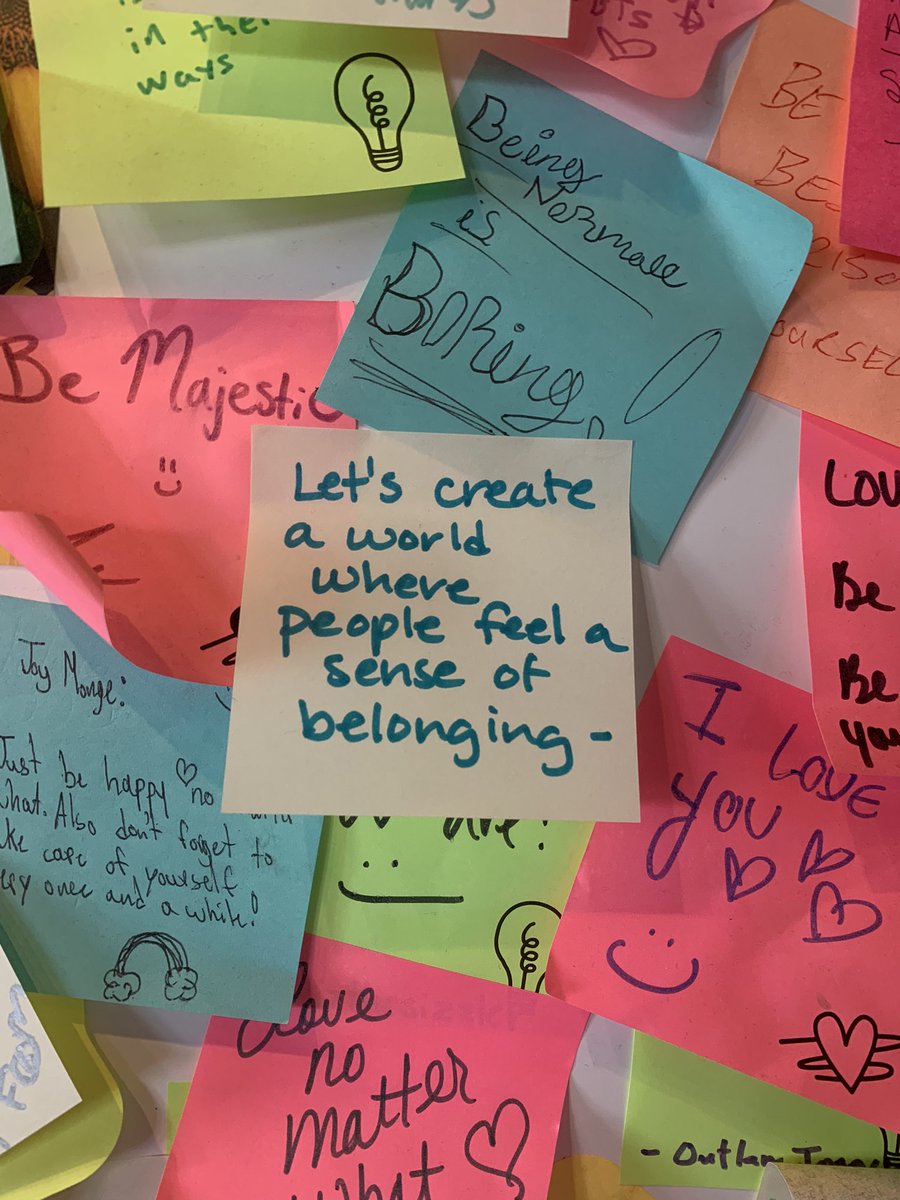 in their
ways
Being
Normall
is
BORing!
BE
BE
OURSEL
Be Majestic
Let's create
a world
where
people feel a
sense of
belonging-
Lov
Be
Be
you
Joy Monge!
Just be happy no
what. Also don't forget to
care of yourself
every once and a while!
are!
I LOVE
YOU
Love
no
matter
what
- Outlaw